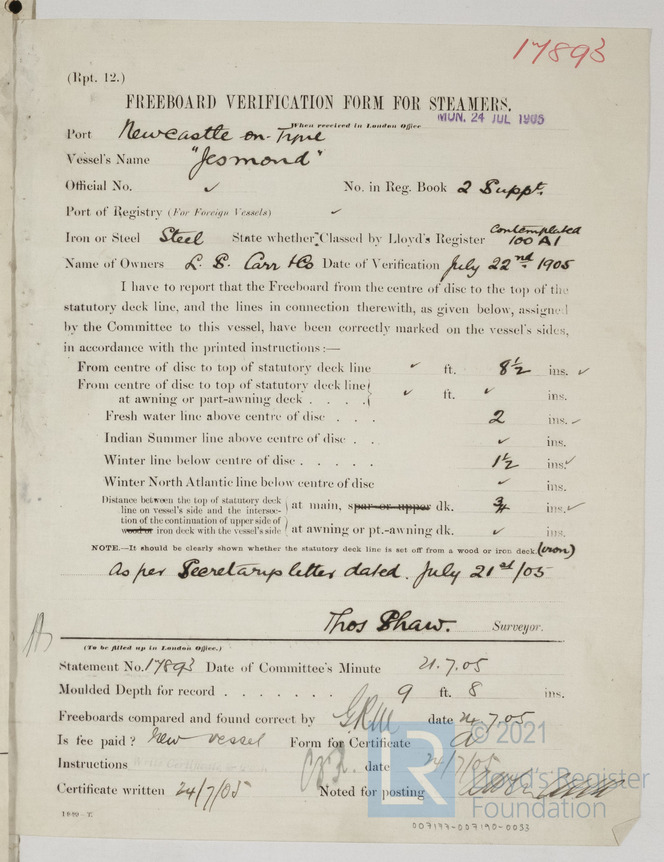 17893
(Rpt. 12.)
FREEBOARD VERIFICATION FORM FOR STEAMERS.
When received in London Office
MON. 24 JUL 1905
Port Newcastle on-Tyne
Vessel's Name "Jesmond"
Official No. ✓ No. in Reg. Book 2 Suppt.
Port of Registry (For Foreign Vessels) ✓
Iron or Steel Steel State whether Classed by Lloyd's Register Contemplated 100 A1
Name of Owners L. S. Carr & Co Date of Verification July 22nd 1905
I have to report that the Freeboard from the centre of disc to the top of the
statutory deck line, and the lines in connection therewith, as given below, assigned
by the Committee to this vessel, have been correctly marked on the vessel's sides,
in accordance with the printed instructions:—
From centre of disc to top of statutory deck line ✓ ft. 8½ ins. ✓
From centre of disc to top of statutory deck line
at awning or part-awning deck . . . . ✓ ft. ✓ ins.
Fresh water line above centre of disc . . . 2 ins. ✓
Indian Summer line above centre of disc . . ✓ ins.
Winter line below centre of disc . . . . . 1½ ins. ✓
Winter North Atlantic line below centre of disc ✓ ins.
Distance between the top of statutory deck
line on vessel's side and the intersec-
tion of the continuation of upper side of
wood or iron deck with the vessel's side
at main, spar or upper dk. ¾ ins. ✓
at awning or pt.-awning dk. ✓ ins.
NOTE.—It should be clearly shown whether the statutory deck line is set off from a wood or iron deck. (iron)
As per Secretarys letter dated. July 21st/05
Thos Shaw. Surveyor.
(To be filled up in London Office.)
Statement No. 17893 Date of Committee's Minute 21.7.05
Moulded Depth for record . . . . . . . 9 ft. 8 ins.
Freeboards compared and found correct by GRM date 24.7.05
Is fee paid? New vessel Form for Certificate a
Instructions date 24/7/05
Certificate written 24/7/05 Noted for posting
1040—T.
© 2021
Lloyd's Register
Foundation
007177-007190-0053